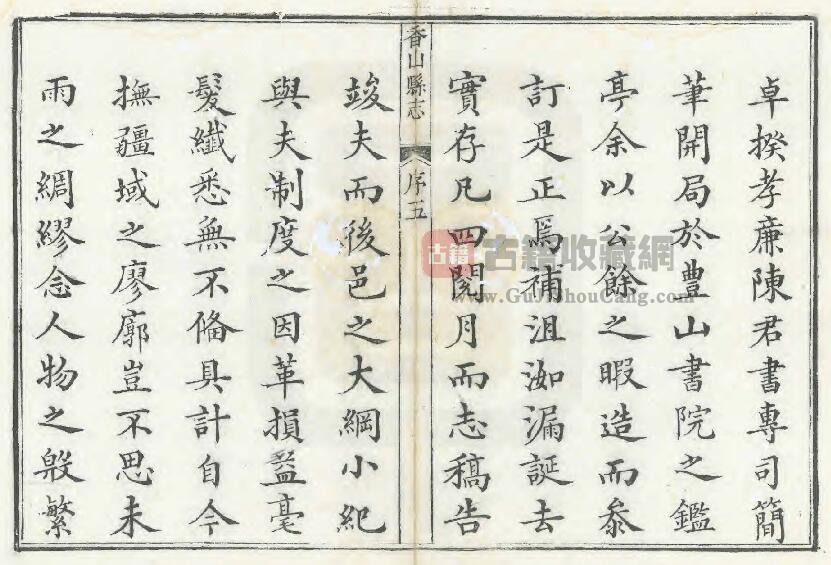 卓揆孝廉陳君書專司簡
筆開局於豊山書院之鑑
亭余以公餘之暇造而叅
訂是正焉補沮洳漏誕去
實存凡四閱月而志稿告
香山縣志
序五
竣夫而後邑之大綱小紀
與夫制度之因革損益毫
髮纖悉無不俻具計自今
撫疆域之廖廓豈不思未
雨之綢繆念人物之殷繁
古籍
古籍收藏網
www.GuJiShouCang.com